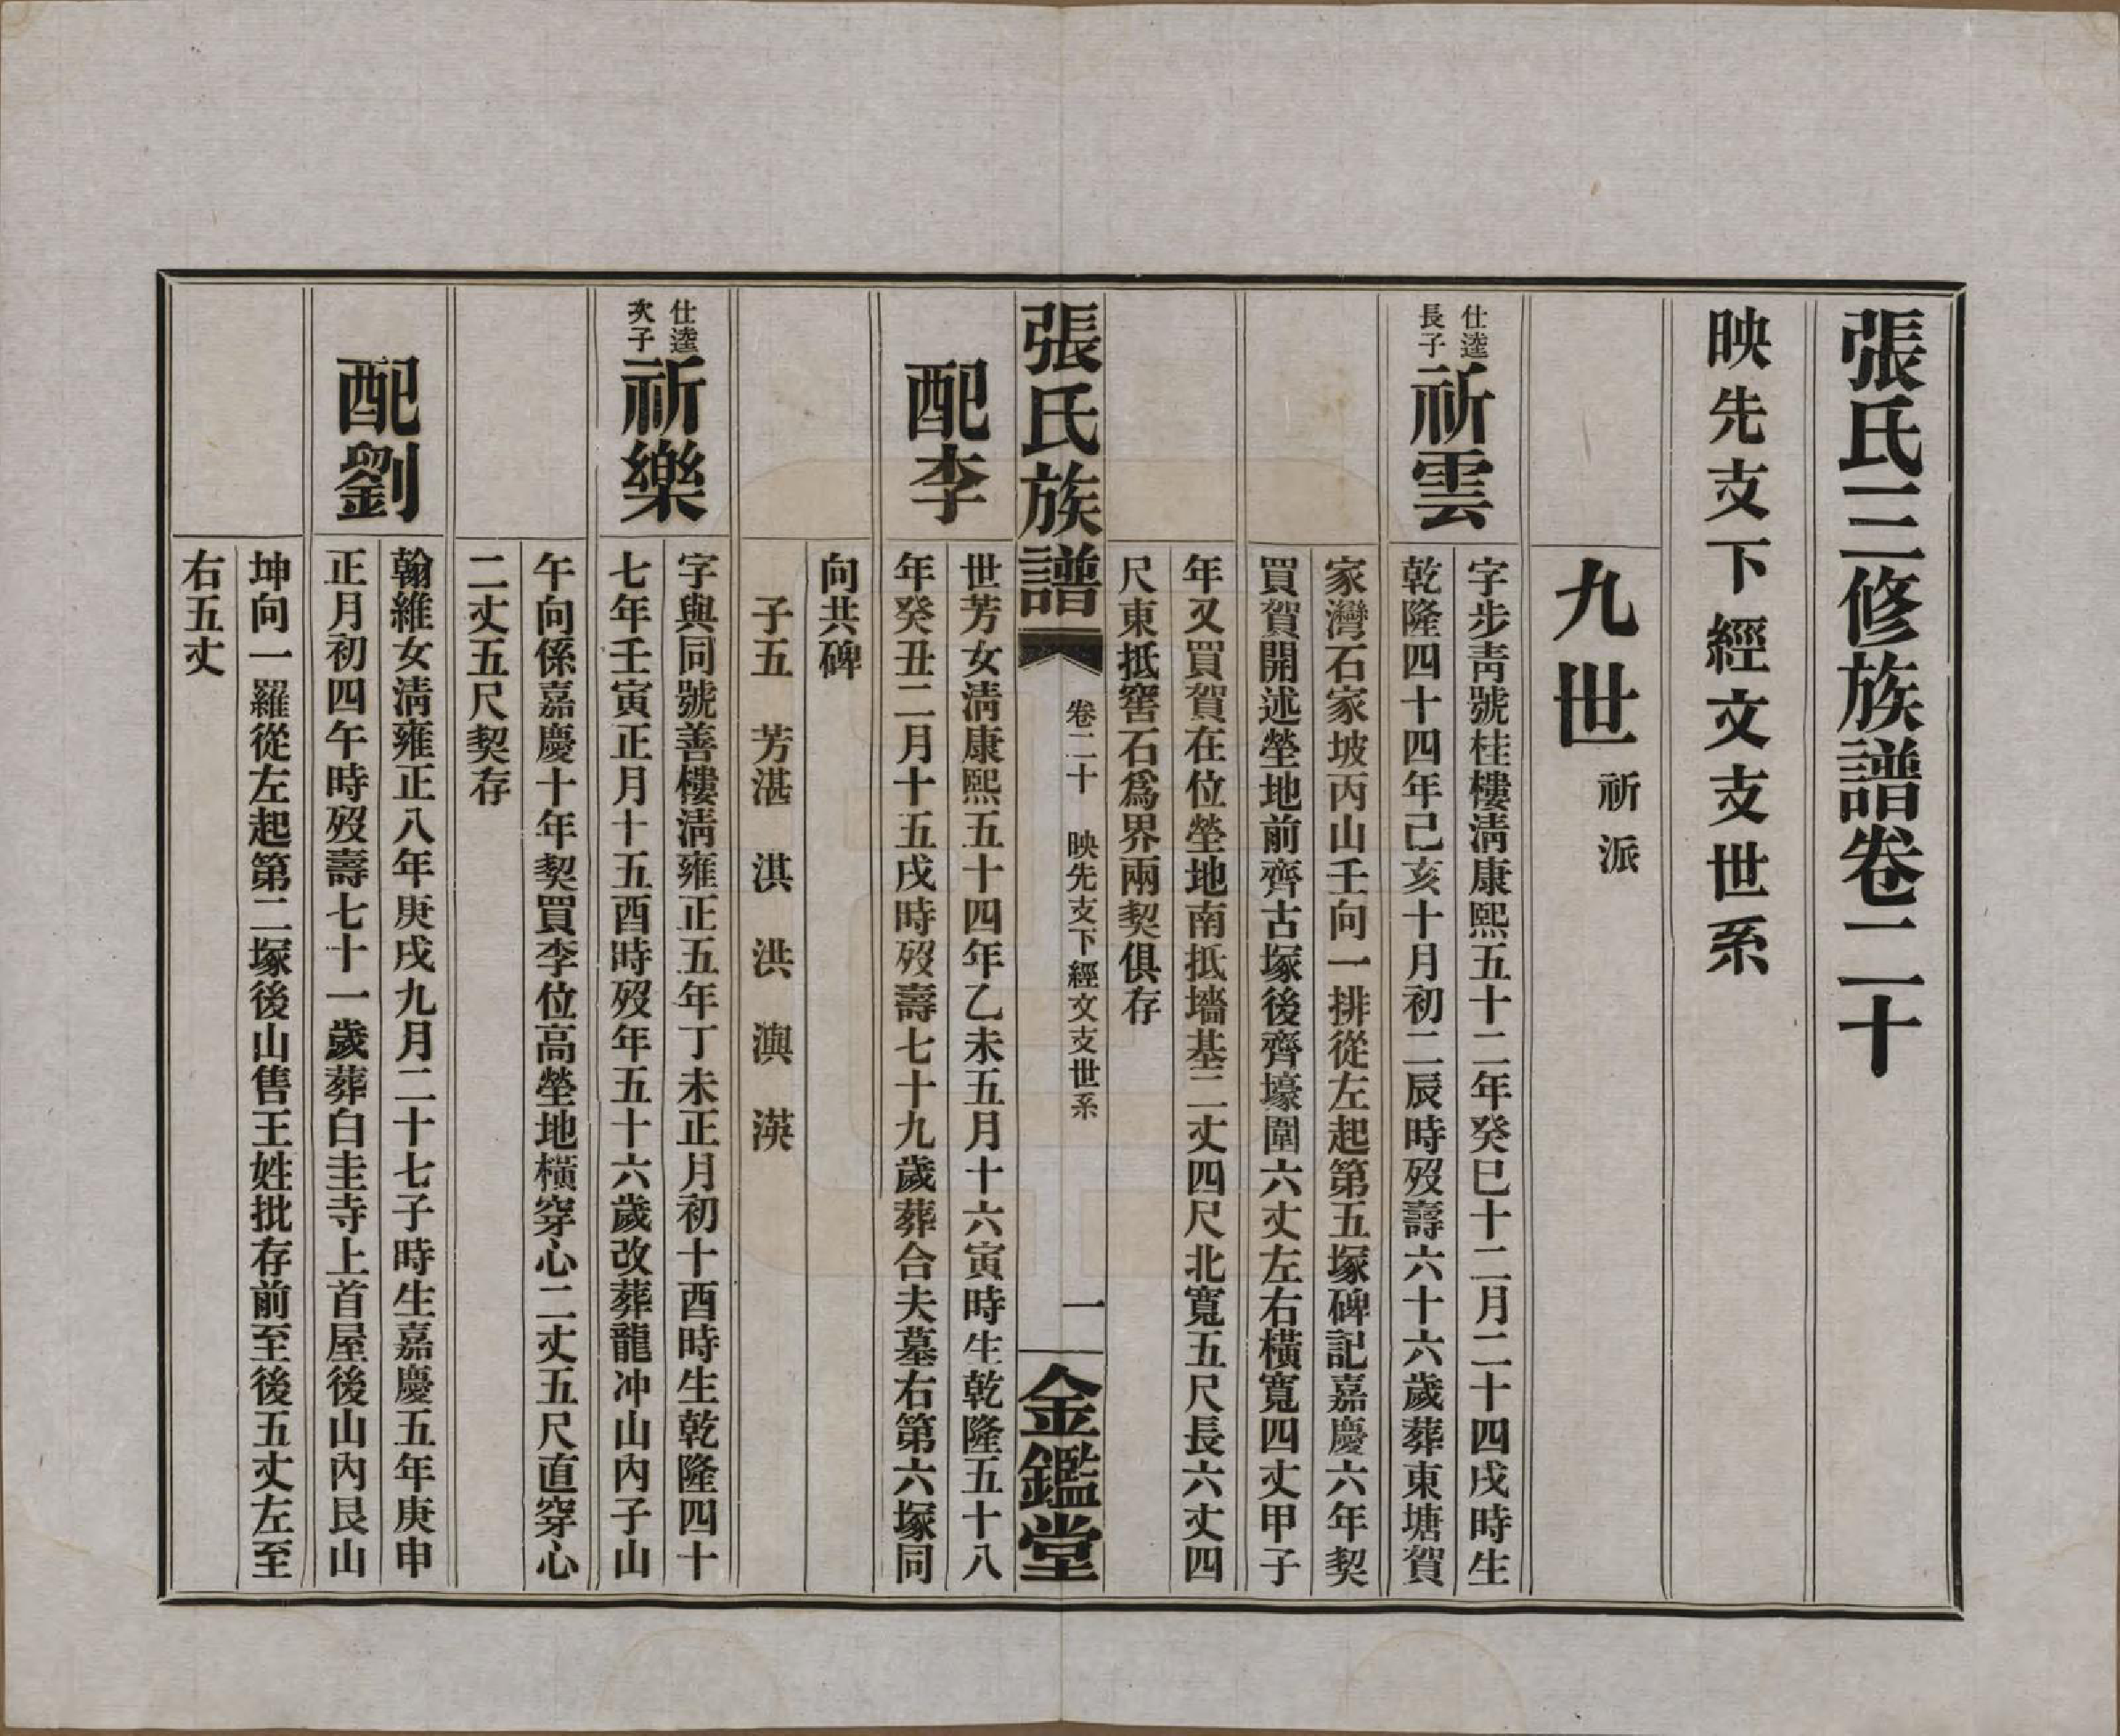 張氏三修族譜卷二十
映先支下經文支世系
九世祈派
仕逵長子
祈雲
字步青號桂樓清康熙五十二年癸巳十二月二十四戌時生
乾隆四十四年己亥十月初二辰時歿壽六十六歲葬東塘賀
家灣石家坡丙山壬向一排從左起第五塚碑記嘉慶六年契
買賀開述塋地前齊古塚後齊壕圍六丈左右橫寬四丈甲子
年又買賀在位塋地南抵墻基二丈四尺北寬五尺長六丈四
尺東抵窖石爲界兩契俱存
張氏族譜
卷二十 映先支下經文支世系
一
金鑑堂
配李
世芳女清康熙五十四年乙未五月十六寅時生乾隆五十八
年癸丑二月十五戌時歿壽七十九歲葬合夫墓右第六塚同
向共碑
子五 芳湛 淇 洪 澳 渶
仕逵次子
祈樂
字與同號善樓清雍正五年丁未正月初十酉時生乾隆四十
七年壬寅正月十五酉時歿年五十六歲改葬龍冲山內子山
午向係嘉慶十年契買李位高塋地橫穿心二丈五尺直穿心
二丈五尺契存
配劉
翰維女清雍正八年庚戌九月二十七子時生嘉慶五年庚申
正月初四午時歿壽七十一歲葬白圭寺上首屋後山內艮山
坤向一羅從左起第二塚後山售王姓批存前至後五丈左至
右五丈